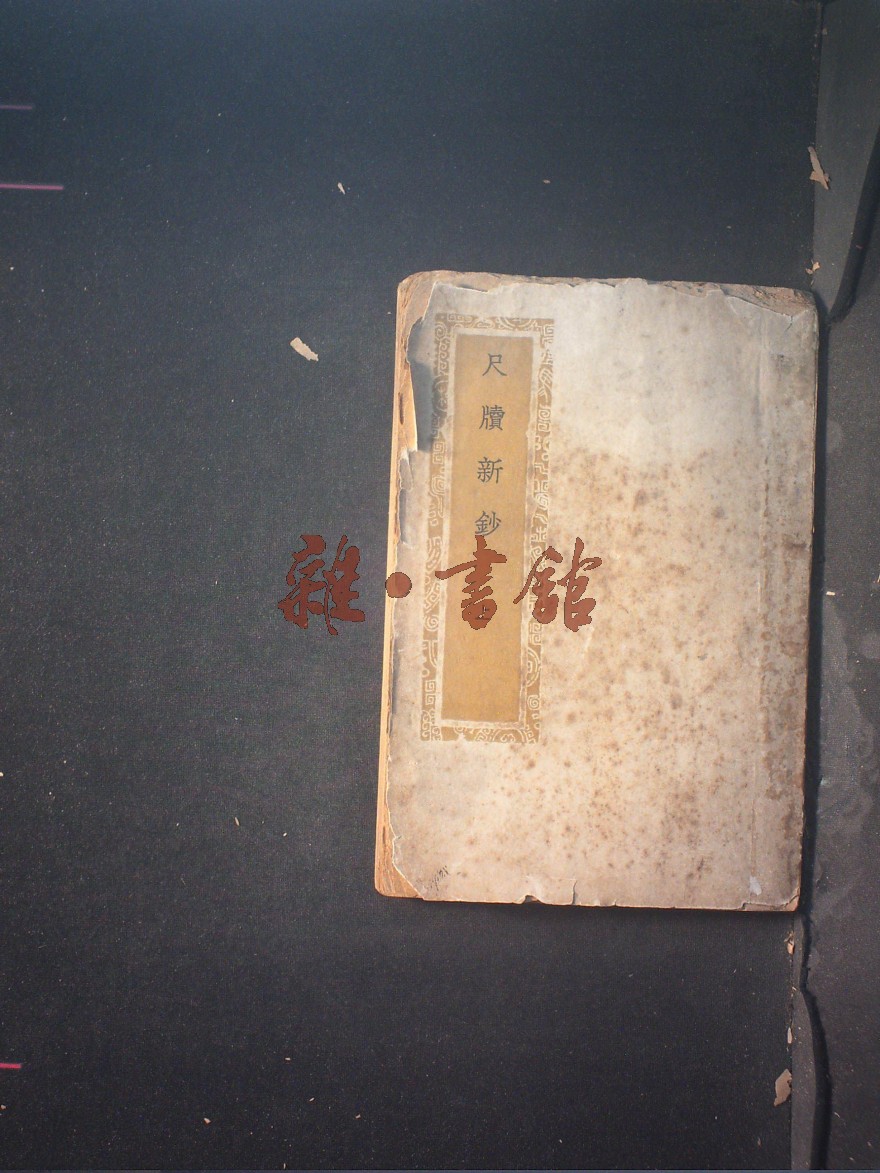 尺牘新鈔
雜·書館